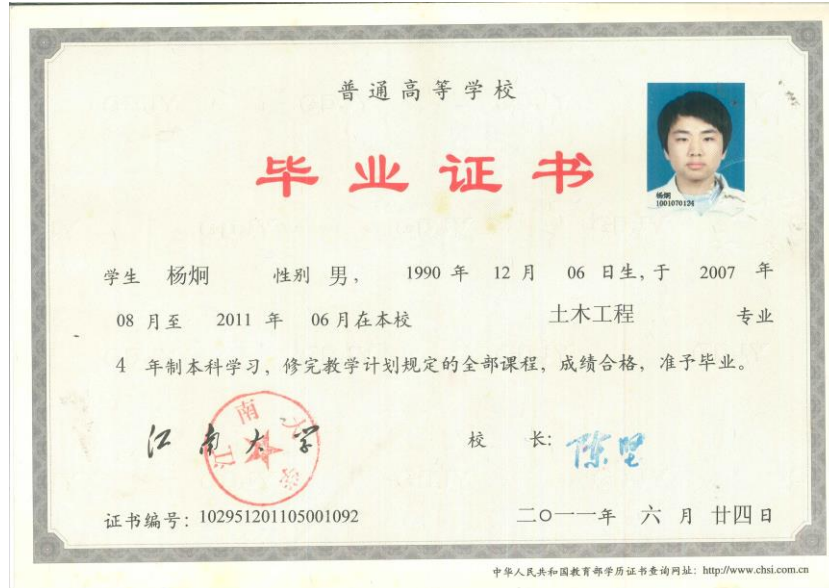 普通高等学校
毕业证书
杨炯
1001070124
学生 杨炯 性别 男, 1990 年 12 月 06 日生, 于 2007 年
08 月至 2011 年 06 月在本校 土木工程 专业
4 年制本科学习, 修完教学计划规定的全部课程, 成绩合格, 准予毕业。
江南大学
江南大学
校 长: 陈坚
证书编号: 102951201105001092
二〇一一年 六 月 廿四日
中华人民共和国教育部学历证书查询网址: http://www.chsi.com.cn